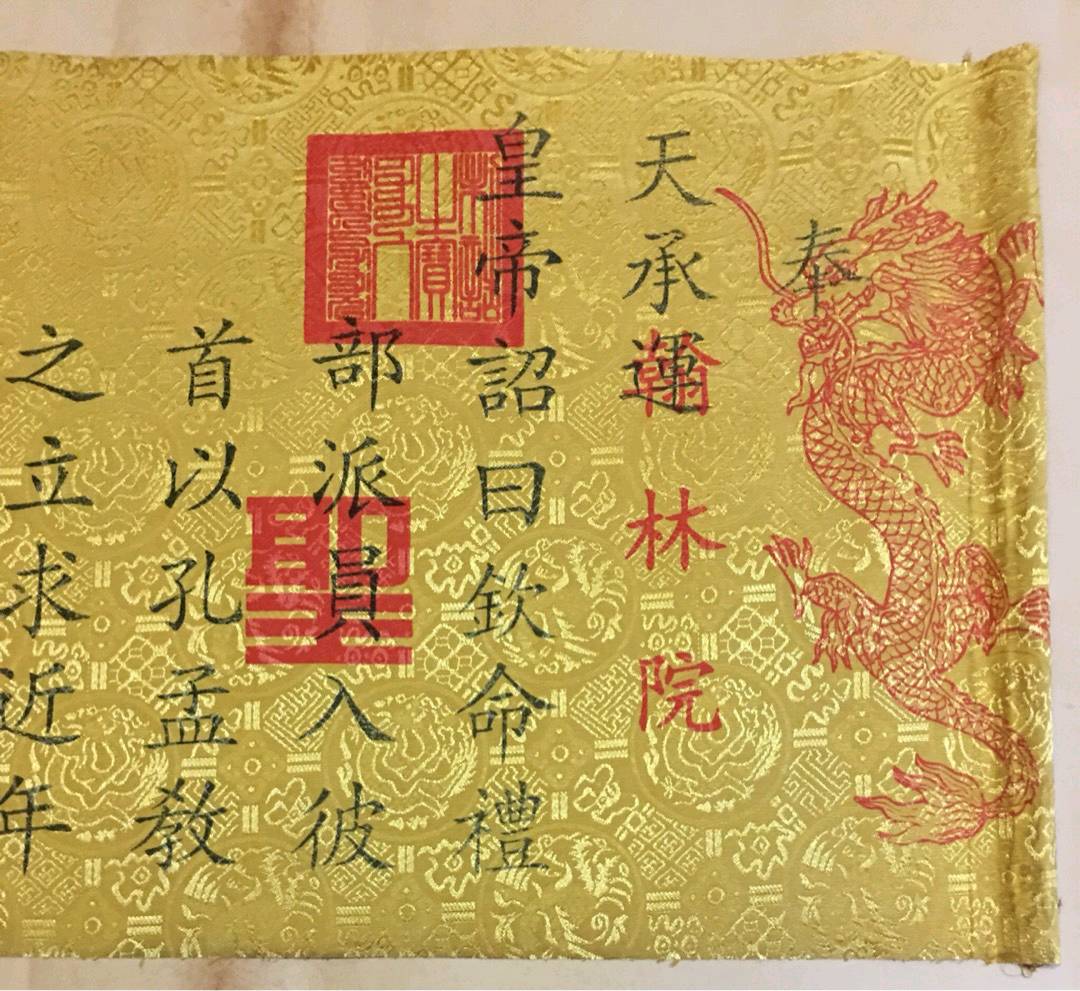 奉
天承運
翰林院
皇帝詔曰欽命禮
部派員入彼
首以孔孟教
之立求近年
聖